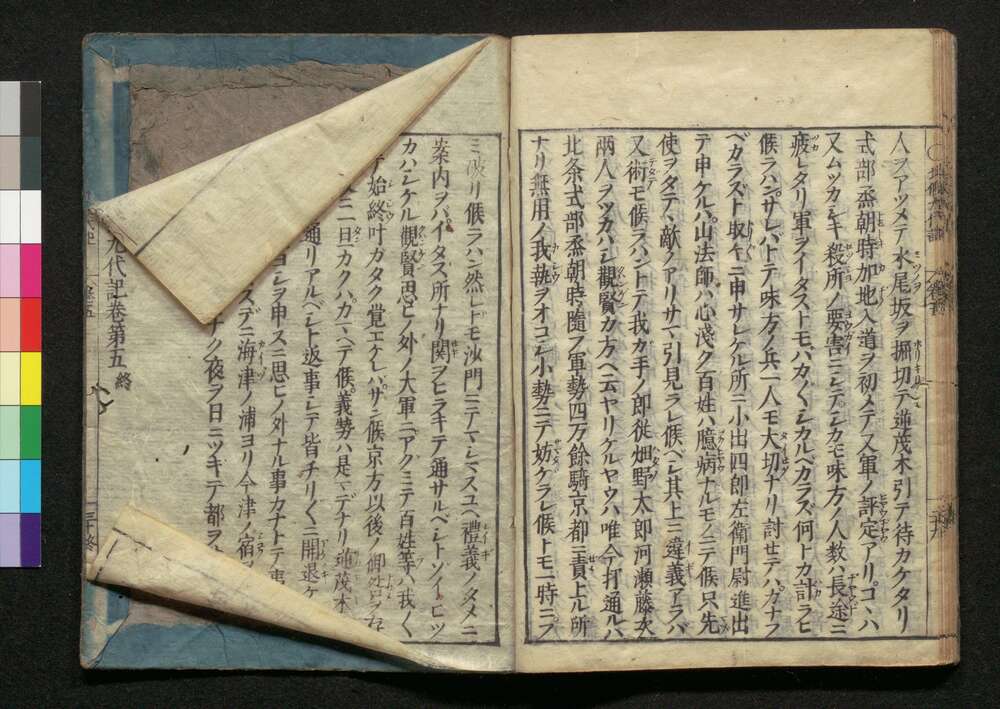 人ヲアツメテ水尾坂ヲ掘切テ逆茂木引テ待カケタリ
式部丞朝時加地入道ヲ初メテ又軍ノ評定アリコヽハ
又ムツカシキ殺所ノ要害ニシテシカモ味方ノ人数ハ長途ニ
疲レタリ軍ヲイタストモハカ〱シカルベカラズ何トカ計ラヒ
候ラハンサレバトテ味方ノ兵一人モ大切ナリ討セテハカナフ
ベカラズト取〱ニ申サレケル所ニ小出四郎左衛門尉進出
テ申ケルハ山法師ハ心浅ク百姓ハ臆病ナルモノニテ候只先
使ヲタテヽ敵ノアリサマ引見ラレ候ベシ其上ニ違義アラバ
又術モ候ラハントテ我カ手ノ郎従畑野太郎河瀬藤次
両人ヲツカハシ観賢カ方ヘ云ヤリケルヤウハ唯今打通ルハ
北条式部丞朝時随フ軍勢四万餘騎京都ニ責上ル所
ナリ無用ノ我執ヲオコシ小勢ニテ妨ケラレ候トモ一時ニフ
ミ破リ候ラハン然レトモ沙門ニテマシマスユヘ禮義ノタメニ
案内ヲバイタス所ナリ関ヲヒラキテ通サルベシトソイヒツ
カハシケル観賢思ヒノ外ノ大軍ニアクミテ百姓等ハ我〱
始終叶ガタク覚エケレバサン候京方以後ノ御咎ヲ存
二三日カクハカヽヘテ候義勢ハ是マデナリ逆茂木
通リアルベシト返事シテ皆チリ〱ニ開退ケ
ヨシヲ申スニ思ヒノ外ナル事カナトテ事
スデニ海津ノ浦ヨリ今津ノ宿
ナク夜ヲ日ニツギテ都ヲ
九代記巻第五終